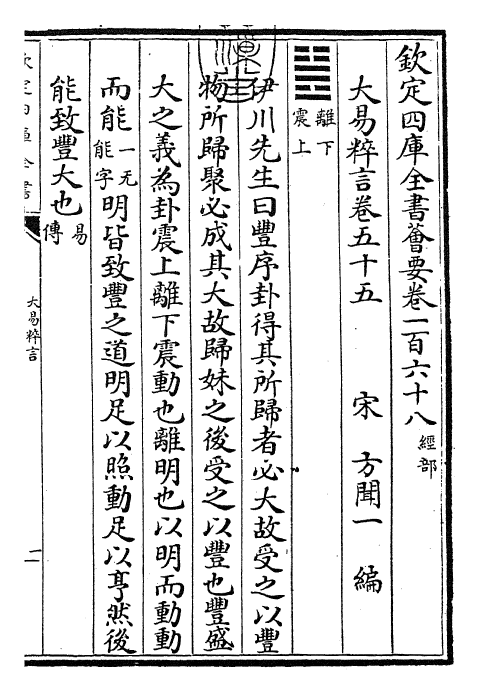 欽定四庫全書薈要卷一百六十八 經部
大易粹言卷五十五 宋 方聞一 編
離下
震上
伊川先生曰豐序卦得其所歸者必大故受之以豐
物所歸聚必成其大故歸妹之後受之以豐也豐盛
大之義為卦震上離下震動也離明也以明而動動
而能一无能字明皆致豐之道明足以照動足以亨然後
能致豐大也易傳
大易粹言